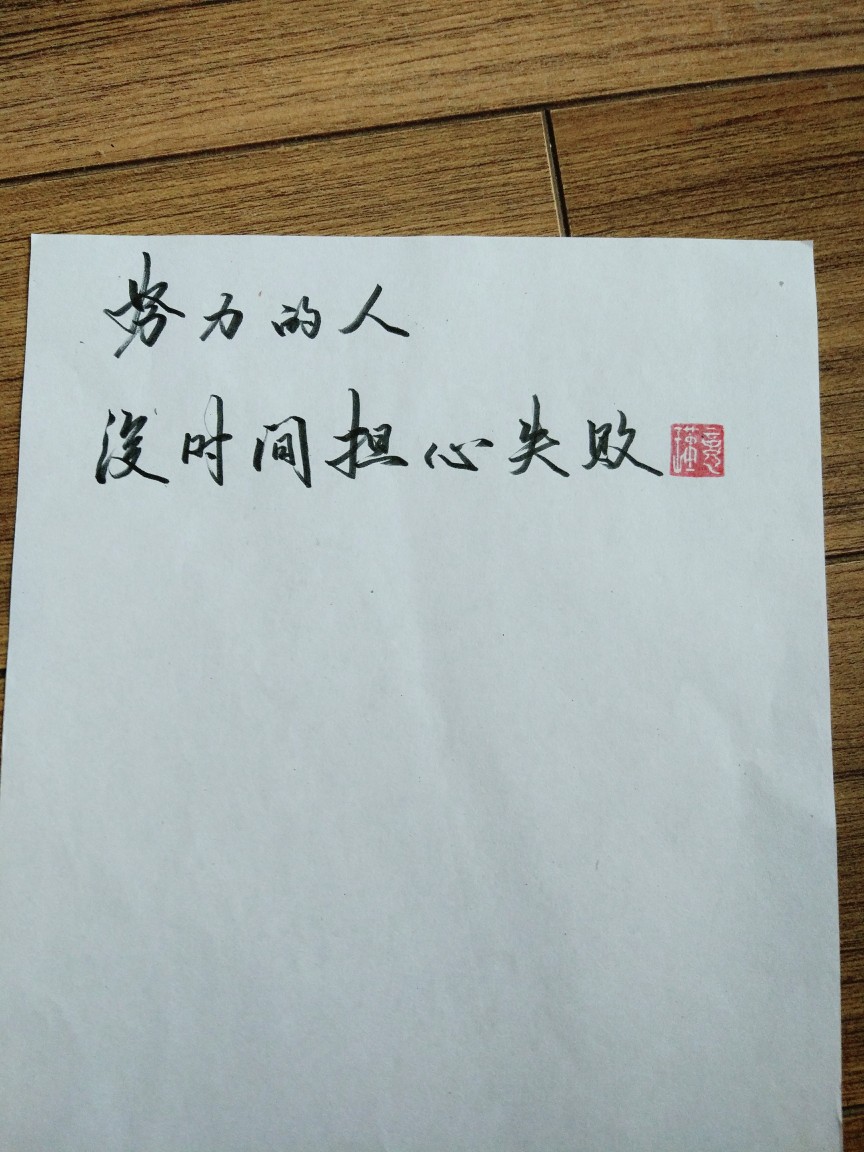 努力的人
没时间担心失败